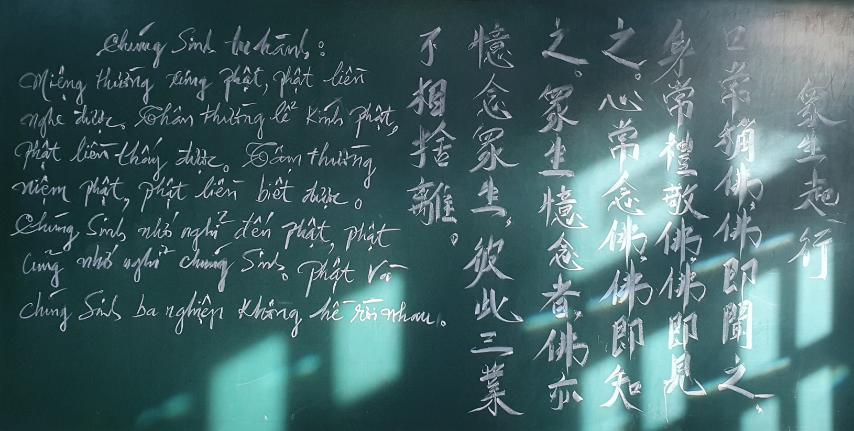 Chúng Sinh tu hành:
Miệng thường xưng phật, phật liền
nghe được. Thân thường lễ kính phật,
phật liền thấy được. Tâm thường
niệm phật, phật liền biết được.
Chúng Sinh nhớ nghĩ đến phật, phật
cũng nhớ nghĩ chúng Sinh. phật và
chúng Sinh ba nghiệp không hề rời nhau.
衆生起行
口常稱佛,佛即聞之,
身常禮敬佛,佛即見
之。心常念佛,佛即知
之。衆生憶念者,佛亦
憶念衆生,彼此三業
不相捨離。